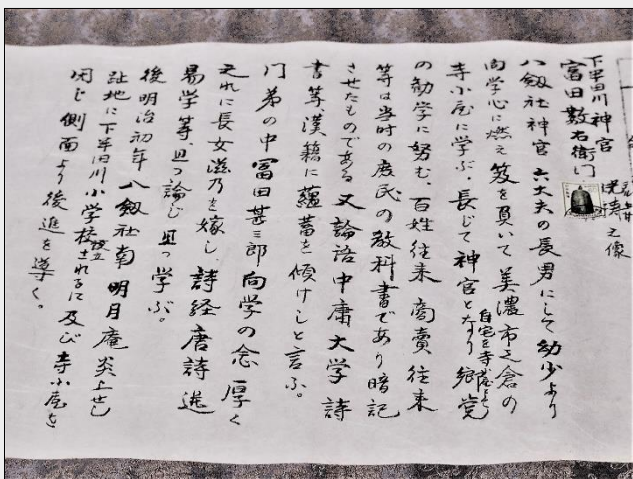 下半田川神官
富田数右衛門
之像
八剱社神官六太夫の長男にして幼少より
向学心に燃え笈を負いて美濃市之倉の
寺小屋に学ぶ、長じて神官となり郷党
自宅を寺小屋とし
の勧学に努む、百姓往来商賣往来
等は当時の庶民の教科書であり暗記
させたものである又論語中庸大学詩
書等、漢籍に蘊蓄を傾けしと言ふ。
門弟の中冨田甚三郎向学の念厚く
之れに長女滋乃を嫁し、詩経唐詩選
易学等、且つ論じ且つ学ぶ。
後明治初年八剱社南明月庵炎上せし
趾地に下半田川小学校設立されるに及び寺小屋を
閉じ側面より後進を導く。